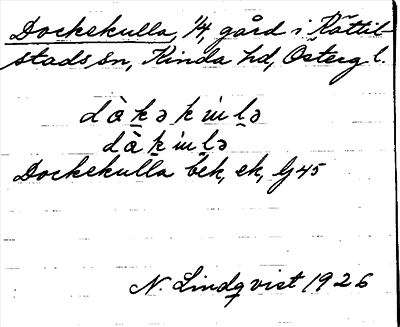 Dockekulla, 1/4, gård i Kättil-
stads sn, Kinda hd, Östergl.
Dockekulla bek, ek, G 45
N. Lindqvist 1926